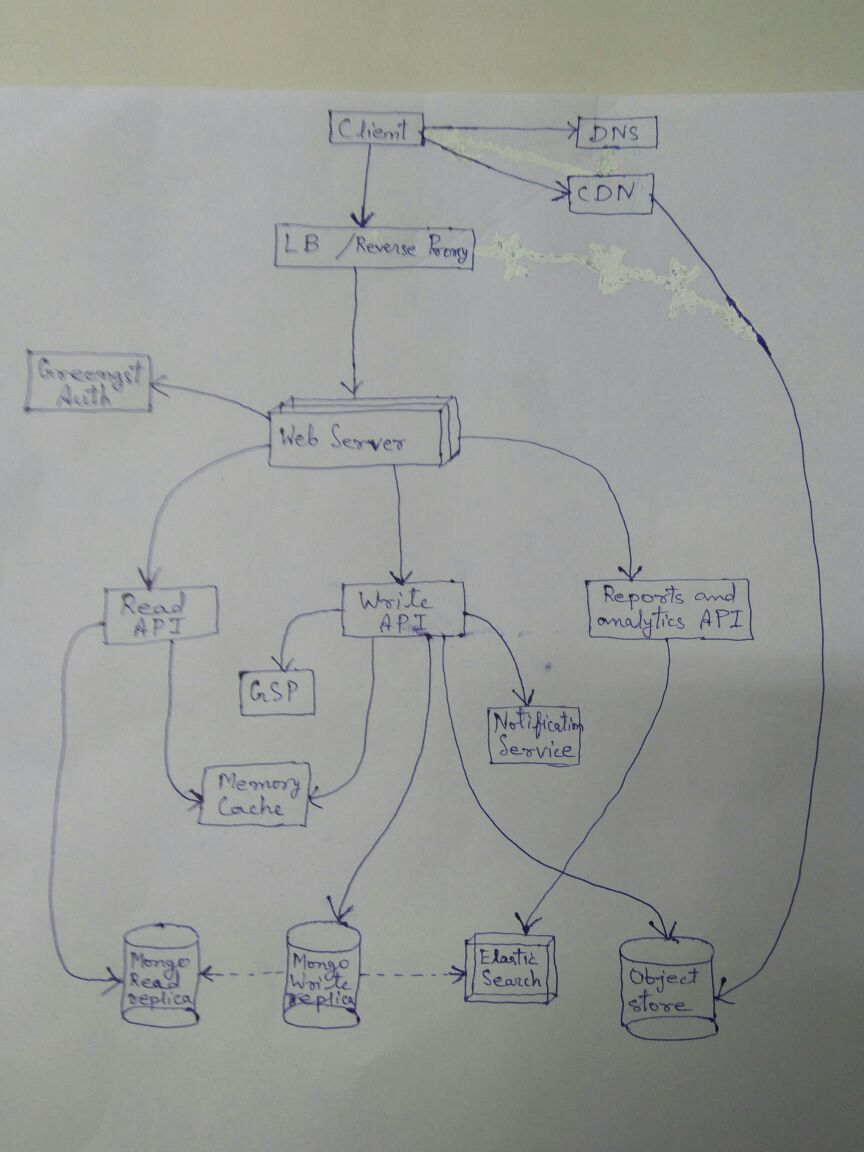 Client
DNS
CDN
LB / Reverse Proxy
Greengst
Auth
Web Server
Read
API
Write
API
Reports and
analytics API
GSP
Notification
Service
Memory
Cache
Mongo
Read
replica
Mongo
Write
replica
Elastic
Search
Object
store